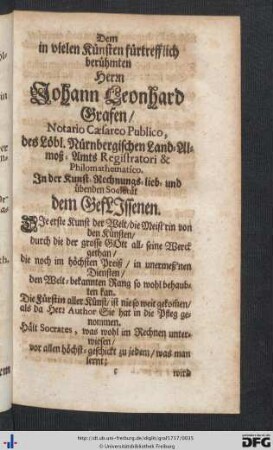 Dem
in vielen Künsten fürtrefflich
berühmten
Herrn
Johann Leonhard
Grafen/
Notario Cæsareo Publico,
des Löbl. Nürnbergischen Land-Al-
moß-Amts Registratori &
Philomathematico.
In der Kunst-Rechnungs-lieb- und
übenden Societät
dem GefLIssenen.
DIe erste Kunst der Welt/ die Meisterin von
den Künsten/
durch die der grosse GOtt all-seine Werck
gethan/
die noch im höchsten Preiß/ in unermeß'nen
Diensten/
den Welt-bekannten Rang so wohl behaub-
ten kan.
Die Fürstin aller Künst/ ist nie so weit gekosten/
als da Herr Author Sie hat in die Pfleg ge-
nommen.
Hält Socrates, was wohl im Rechnen unter-
wiesen/
vor allen höchst-geschickt zu jedem/ was man
lernt;
c
wird
http://dl.ub.uni-freiburg.de/diglit/graf1717/0035
© Universitätsbibliothek Freiburg
Gefördert durch
DFG